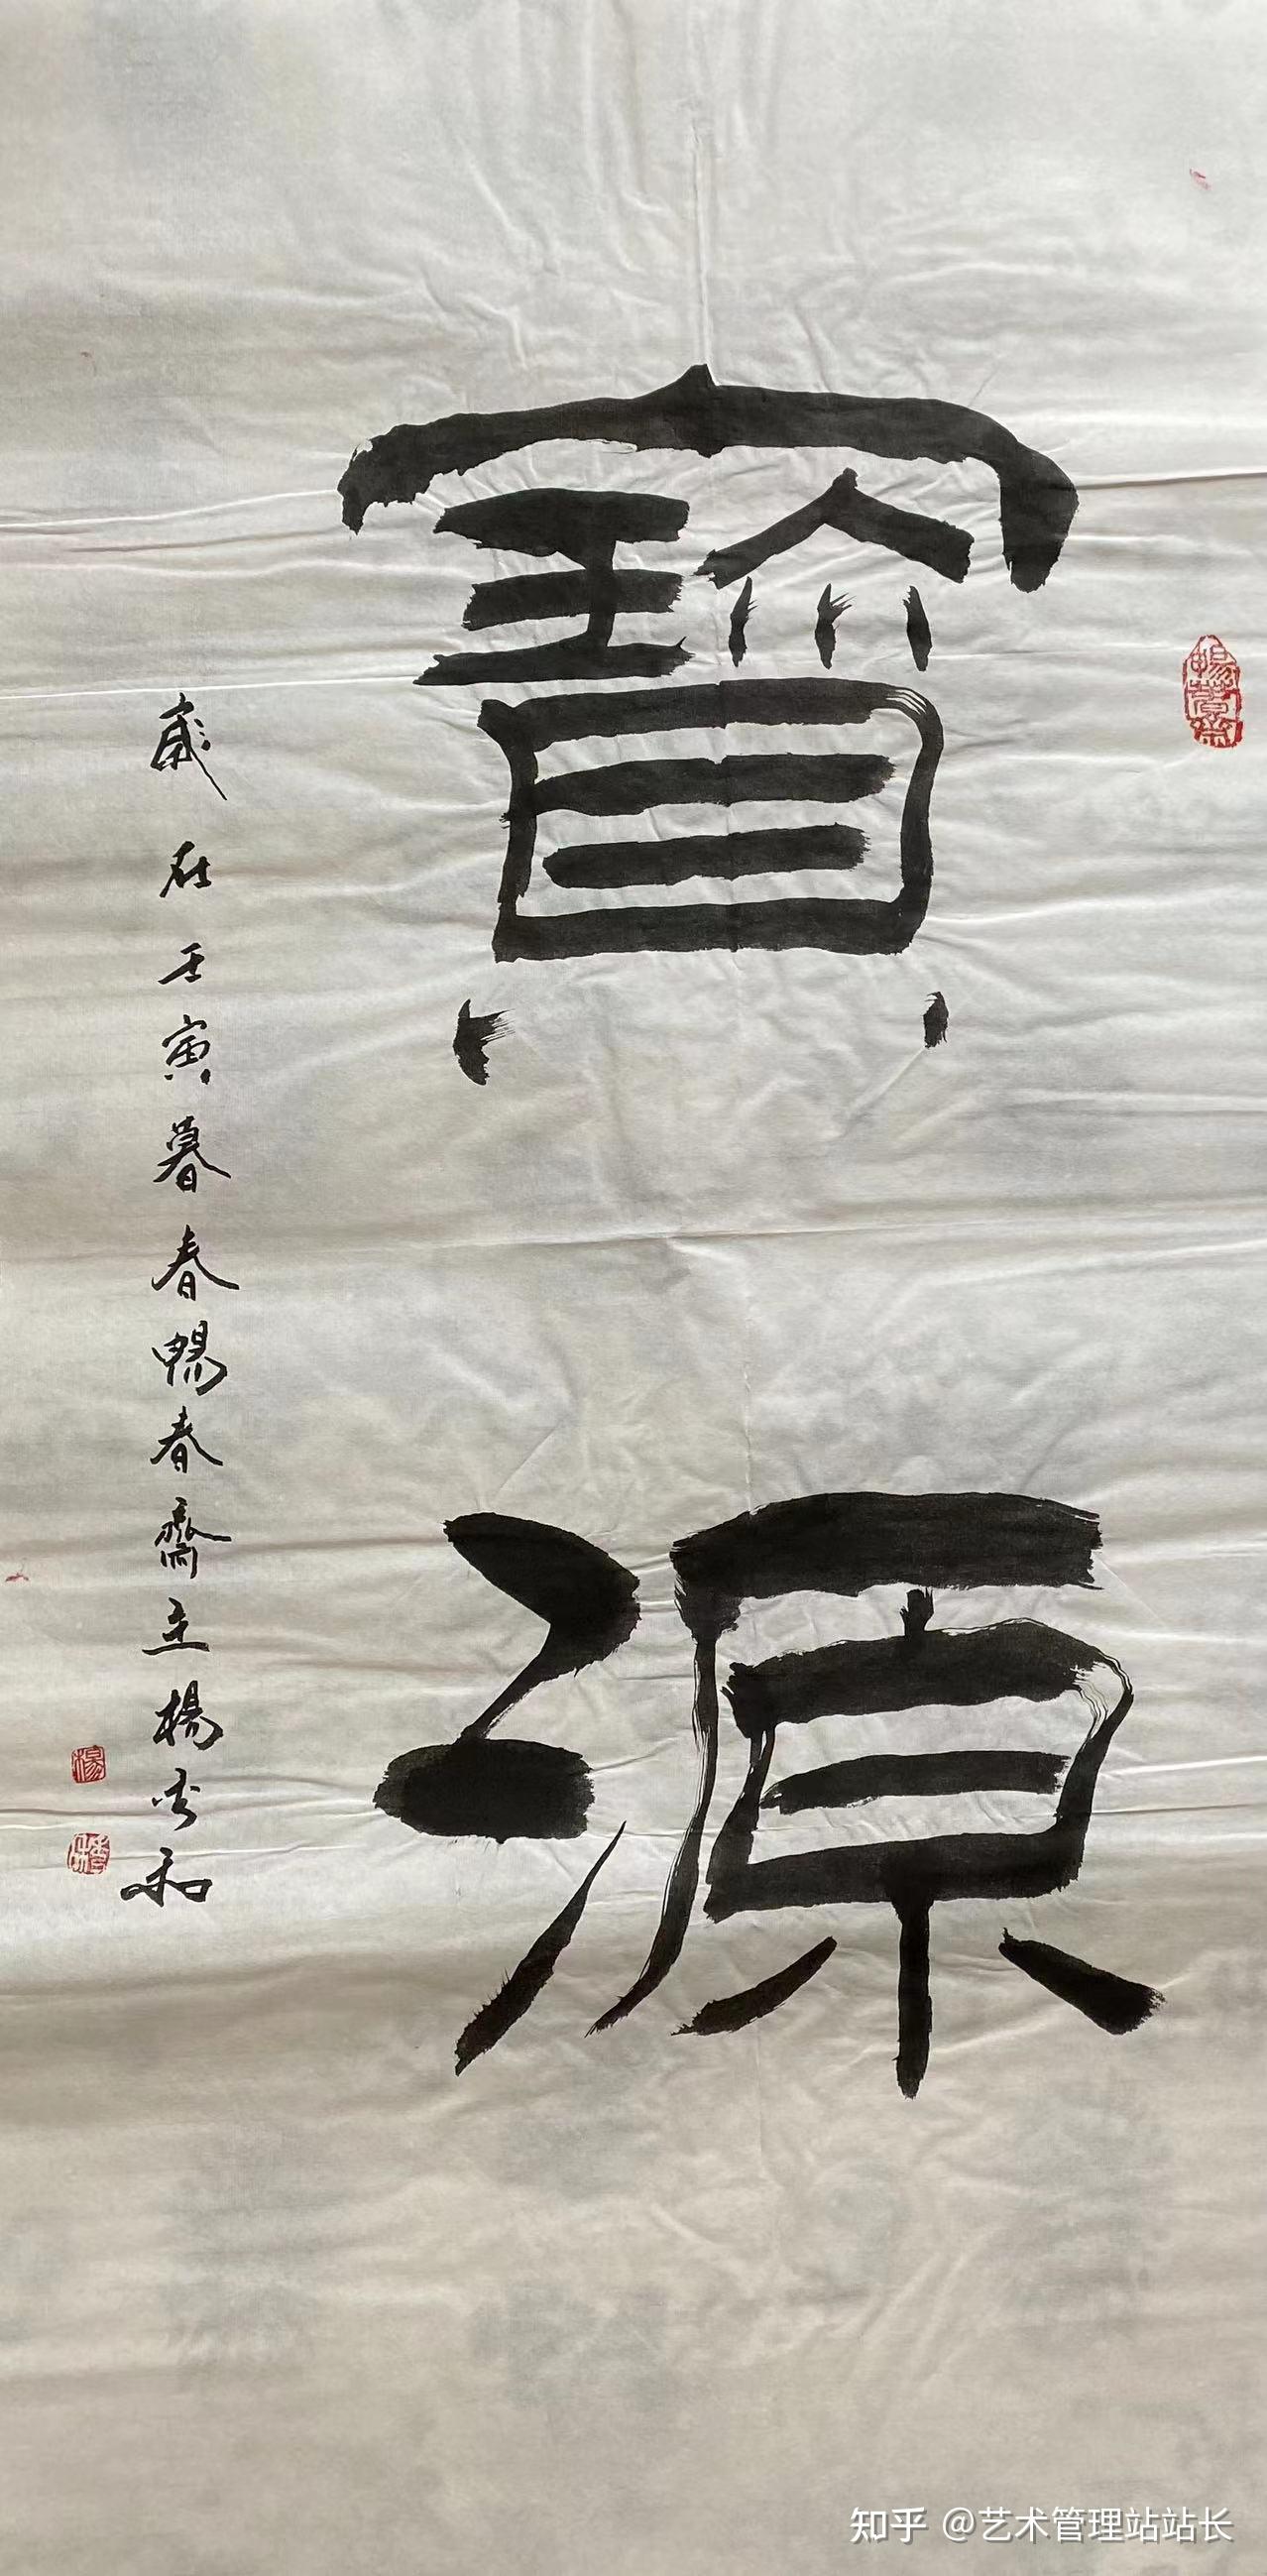 暢春齋
寳源
歲在壬寅暮春暢春齋主楊和
楊
知乎 @艺术管理站站长